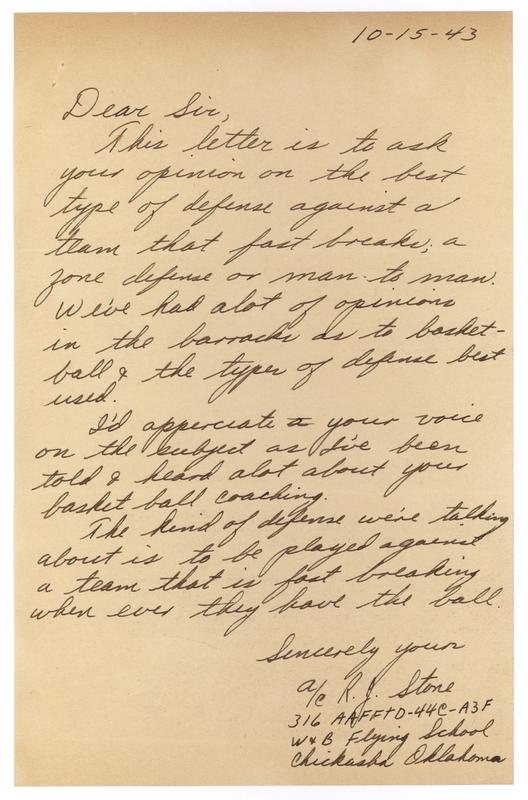 10-15-43
Dear Sir,
This letter is to ask
your opinion on the best
type of defense against a
team that fast breaks; a
zone defense or man to man.
We've had alot of opinions
in the barracks as to basket-
ball & the types of defense best
used.
I'd apperciate a your voice
on the subject as I've been
told & heard alot about your
basket ball coaching.
The kind of defense we're talking
about is to be played against
a team that is fast breaking
when ever they have the ball.
Sincerely yours
a/c R. J. Stone
316 AAFFTD-44C-A3F
W&B Flying School
Chickasha Oklahoma